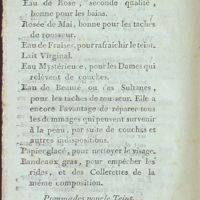 Eau de Rose, seconde qualité,
bonne pour les bains.
Rosée de Mai, bonne pour les taches
de rousseur.
Eau de Fraises, pour rafraîchir le teint.
Lait Virginal.
Eau Mystérieuse, pour les Dames qui
relèvent de couches.
Eau de Beauté ou des Sultanes,
pour les taches de rousseur. Elle a
encore l'avantage de réparer tous
les dommages qui peuvent survenir
à la peau, par suite de couches et
autres indispositions.
Papier glacé, pour nettoyer le visage.
Bandeaux gras, pour empêcher les
rides, et des Collerettes de la
même composition.
Pommades pour le Teint.